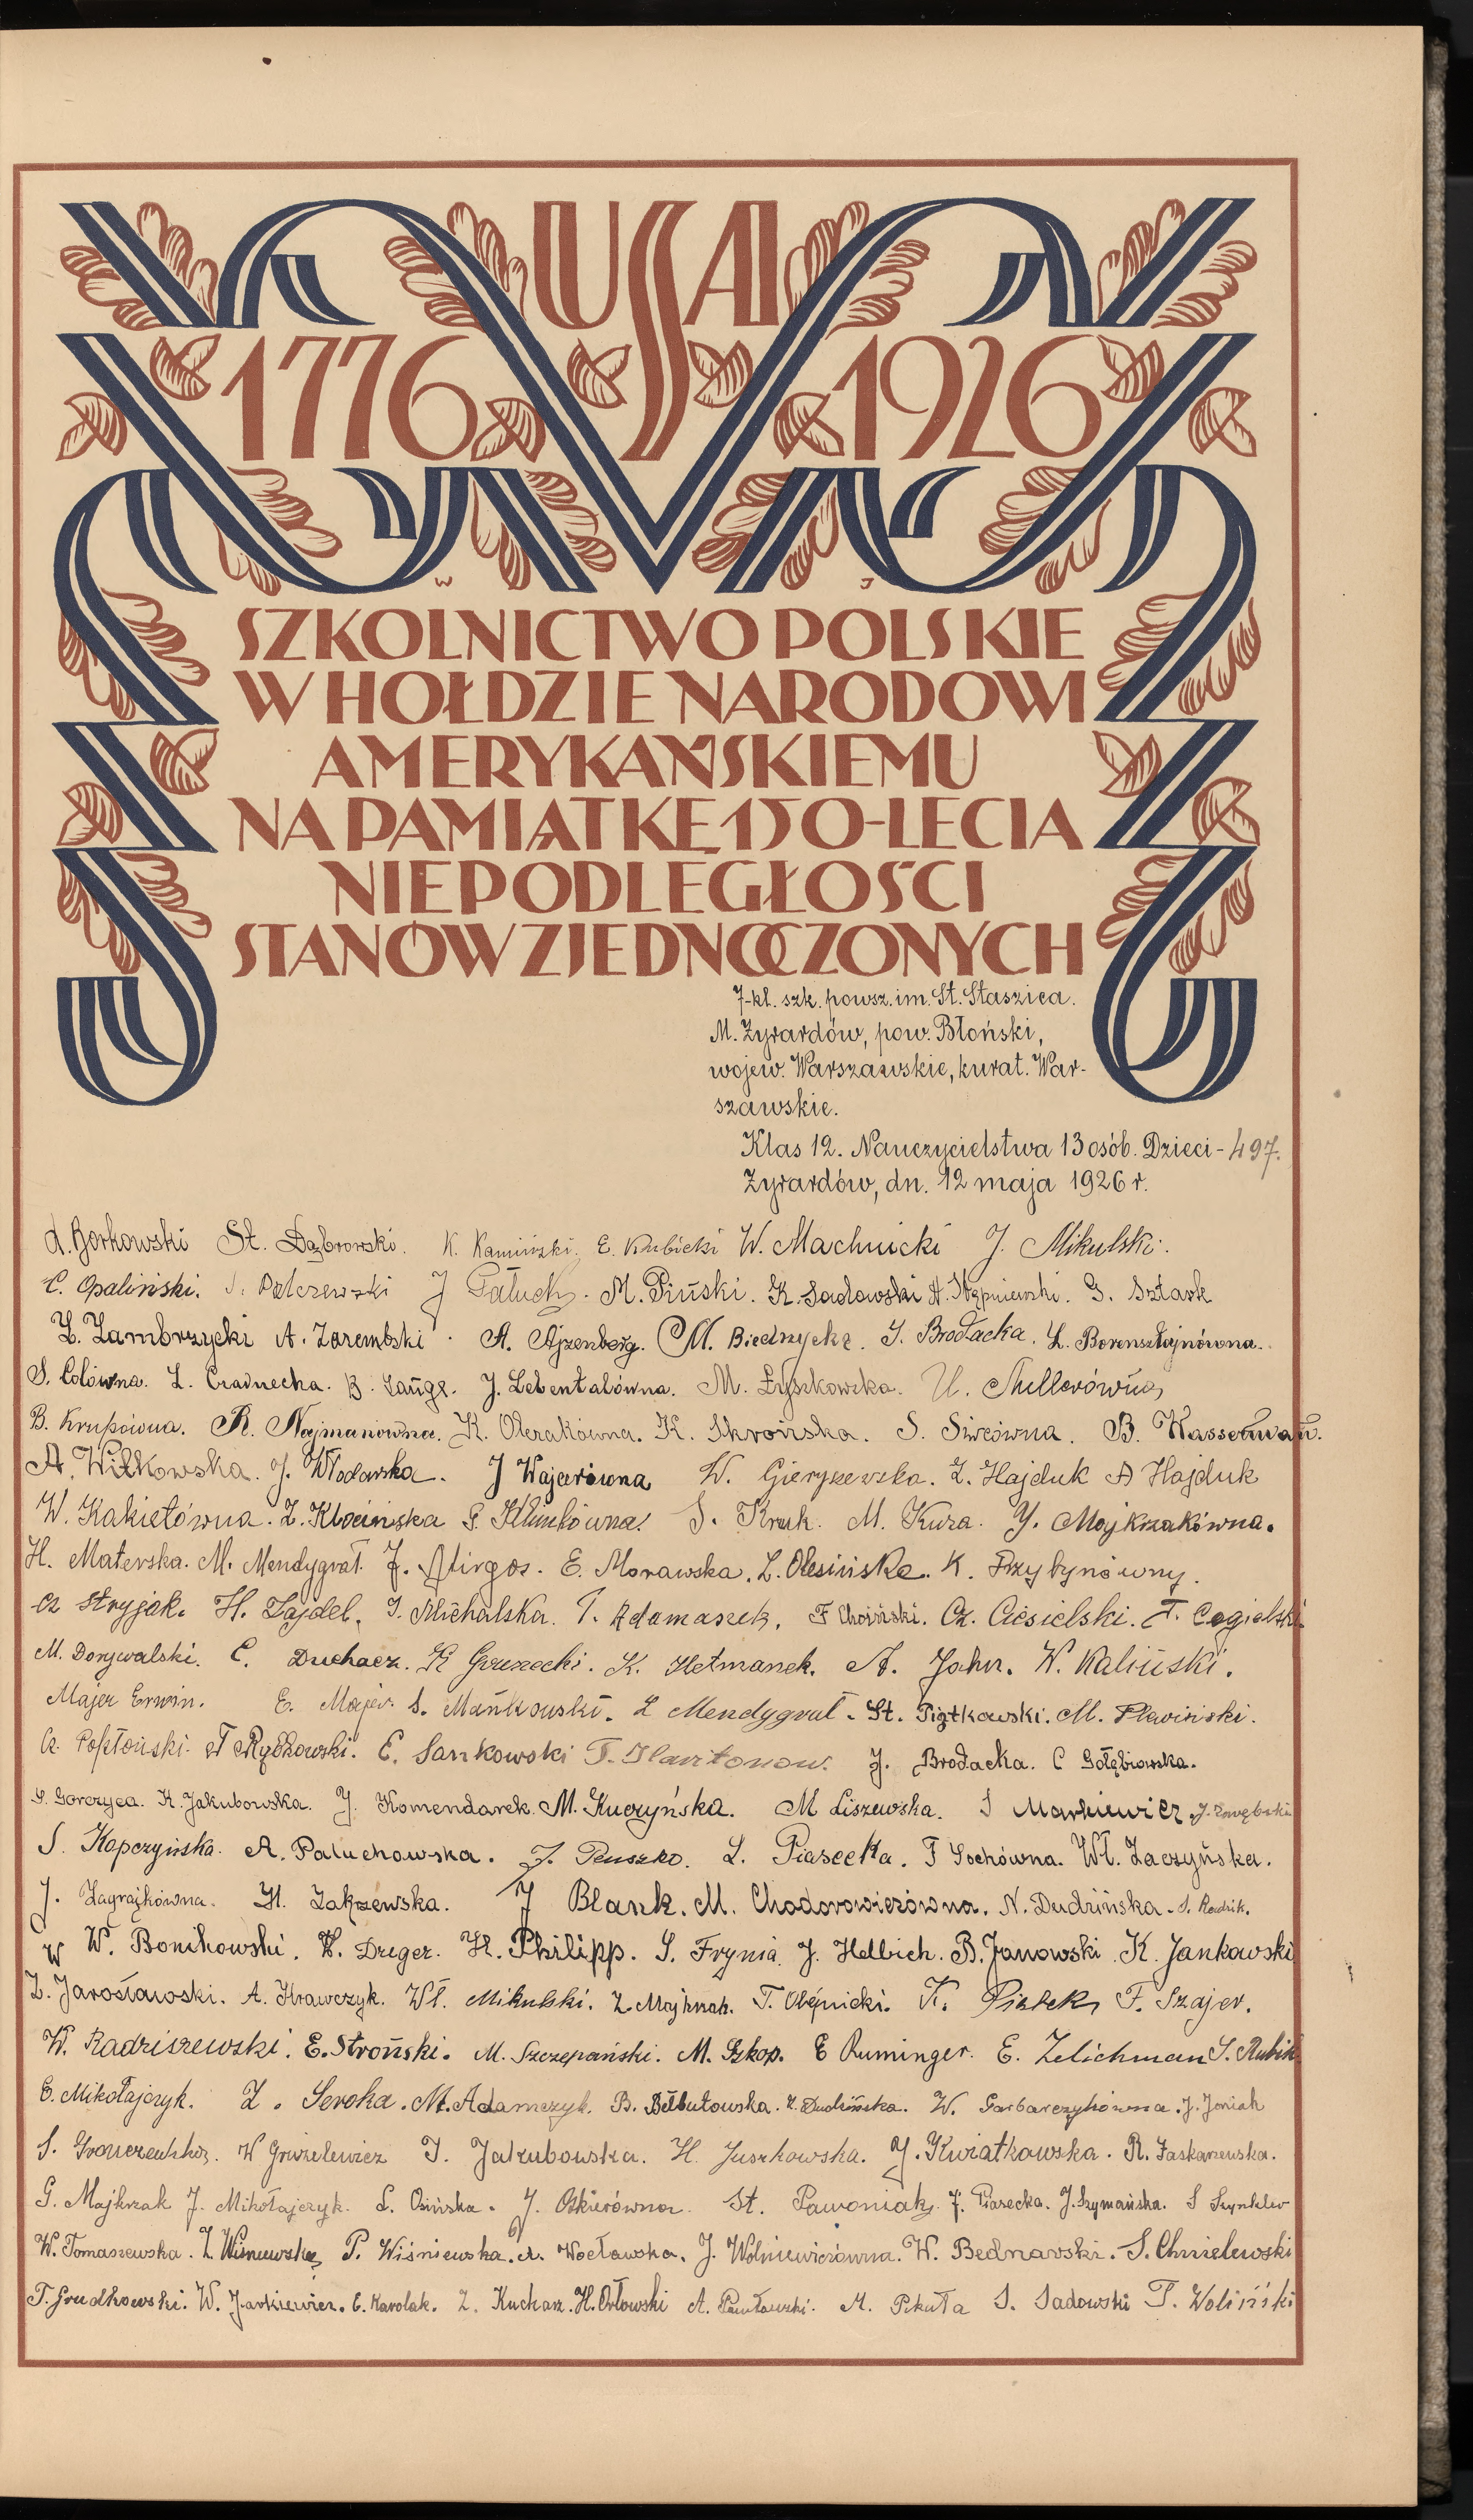 USA
1776 1926
W J
SZKOLNICTWO POLSKIE
W HOŁDZIE NARODOWI
AMERYKAŃSKIEMU
NA PAMIĄTKĘ 150-LECIA
NIEPODLEGŁOŚCI
STANÓW ZJEDNOCZONYCH
7-kl. szk. powsz. im. St. Staszica.
M. Żyrardów, pow. Błoński,
wojew. Warszawskie, kurat. War-
szawskie.
Klas 12. Nauczycielstwa 13 osób. Dzieci - 497.
Żyrardów, dn. 12 maja 1926 r.
A. Borkowski St. Dąbrowski. K. Kamiński. E. Kubicki W. Machnicki J. Mikulski.
C. Opaliński. J. Palczewski J Pałuch. M. Piński. K. Sadowski A. Stępniewski. G. Sztark
Z. Zambrzycki A. Zarembski. A. Ajzenberg. M. Biednycka. J. Brodacka. L. Borensztajnówna.
S. Colówna. Z. Czarnecka. B. Lange. J. Lebentalówna. M. Łyszkowska. U. Mullerówna
B. Krupówna. R. Najmanówna. K. Olczakówna. K. Skrońska. S. Siwcówna. B. Wasserman.
A. Witkowska. J. Włodarska. J Wajcerówna W. Gieryszewska. Z. Hajduk A Hajduk
W. Kakietówna. Z. Klocińska G. Klimkówna. S. Kruk. M. Kura. Y. Majkrzakówna.
H. Materska. M. Mendygrał. J. Mirgos. E. Morawska. L. Olesińska. K. Przybynówny.
Cz Stryjak. H. Zajdel. J. Michalska. T. Adamaszek. F Choiński. Cz. Ciesielski. T. Cegielski.
M. Dorywalski. C. Duchacz. K Gruzecki. K. Hetmanek. A. Jahn. W. Kaliński.
Majer Erwin. E. Majer. S. Mańkowski. Z Mendygrał. St. Piątkowski. M. Pławiński.
Cz. Popłoński. T Rybkowski. E. Sankowski T. Ilaritonow. J. Brodacka. C Gołębiowska.
S. Gorczyca. K. Jakubowska. J. Komendarek. M. Kuczyńska. M Liszewska. S Markiewicz.
S. Kopczyńska. A. Paluchowska. J. Peuszko. L. Piasecka. F Sochówna. Wł. Zaczyńska.
J. Zagrajkówna. H. Zakrzewska. J Blank. M. Chodorowiczówna. N. Dudzińska. S. Radzik.
W W. Bonikowski. W. Dreger. H. Philipp. S. Frynia. J. Helbich. B. Janowski. K. Jankowski
Z. Jarosławski. A. Krawczyk. Wł. Mikulski. Z. Majkrzak. T. Olępnicki. K. Piątek F. Szajer.
W. Radziszewski. E. Stroński. M. Szczepański. M. Szkop. E Ruminger. E. Zelichman S. Rubin
E. Mikołajczyk. Z. Seroka. M. Adamczyk. B. Bełbutowska. Z. Dudzińska. W. Garbarczykówna. J. Joniak
S. W Gruzelewicz J. Jakubowska. H. Juszkowska. J. Kwiatkowska. R. Laskarzewska.
G. Majkrzak J. Mikołajczyk. L. Osińska. J. Oskierówna. St. Pawoniak J. Piasecka. J. Szymańska. S Szynkler
W. Tomaszewska. Z. Wiśniewska P. Wiśniewska. A. Wocławska. J. Wolniewiczówna. W. Bednarski. S. Chmielewski
T. Grudkowski. W. Jarkiewicz. E. Karolak. Z. Kucharz. H. Orłowski A. Pawłowski. M. Pekuła S. Sadowski T. Woliński